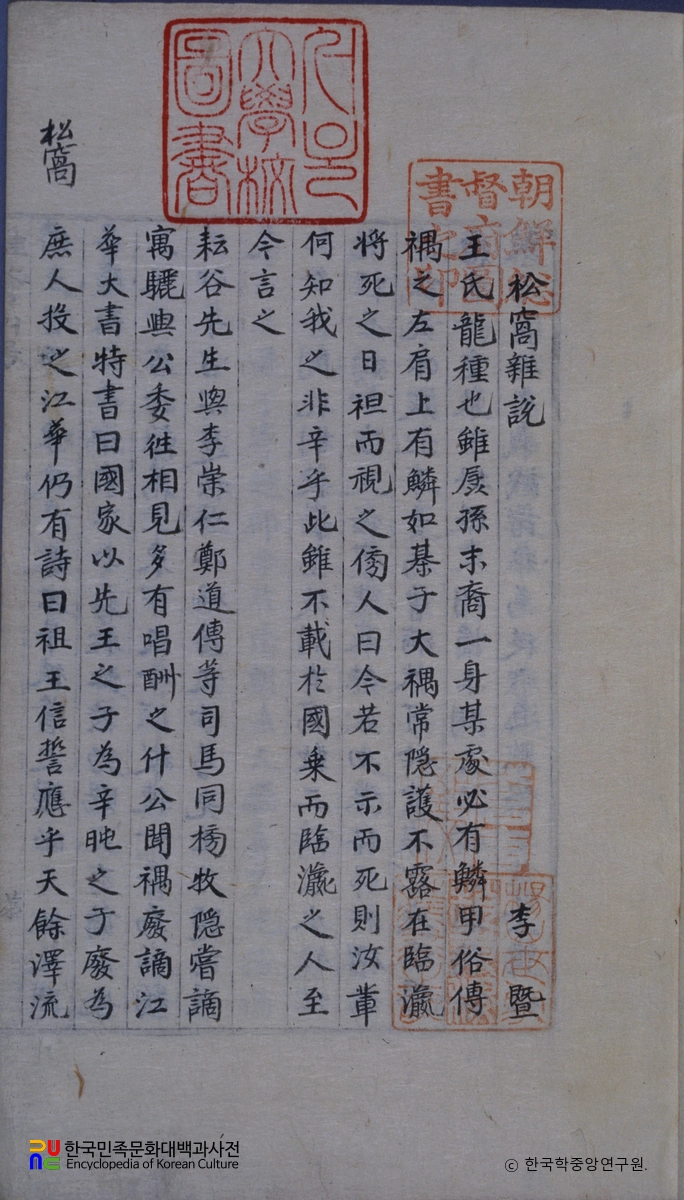 松窩雜說
李 曁
王氏龍種也雖孱孫末裔一身某處必有鱗甲俗傳
禑之左肩上有鱗如碁子大禑常隱護不露在臨瀛
將死之日袒而視之傍人曰今若不示而死則汝輩
何知我之非辛乎此雖不載於國乘而臨瀛之人至
今言之
耘谷先生與李崇仁鄭道傳等司馬同榜牧隱嘗謫
寓驪興公委徃相見多有唱酬之什公聞禑廢謫江
華大書特書曰國家以先王之子為辛旽之子廢為
庶人投之江華仍有詩曰祖王信誓應乎天餘澤流
松窩
大學校
圖書
朝鮮總
督
書
한국민족문화대백과사전
Encyclopedia of Korean Culture
ⓒ 한국학중앙연구원.